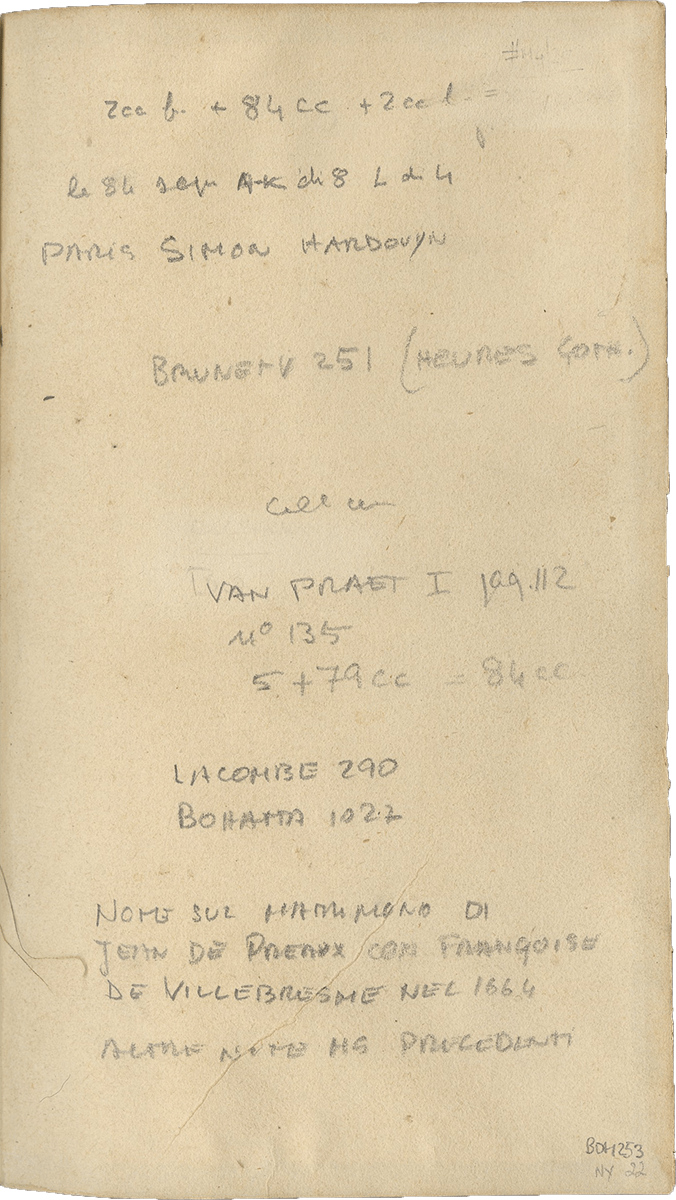 2cc b. + 84 cc + 2cc b. =
le 84 segn A-K di 8 L di 4
PARIS SIMON HARDOUYN
BRUNET V 251 (HEURES GOTH.)
VAN PRAET I pag. 112
N° 135
5 + 79 cc = 84 cc
LACOMBE 290
BOHATTA 1027
NOTE SUL MATRIMONIO DI
JEAN DE PREAUX CON FRANÇOISE
DE VILLEBRESME NEL 1664
ALTRE NOTE MS PRECEDENTI
BOH 253
NY 22